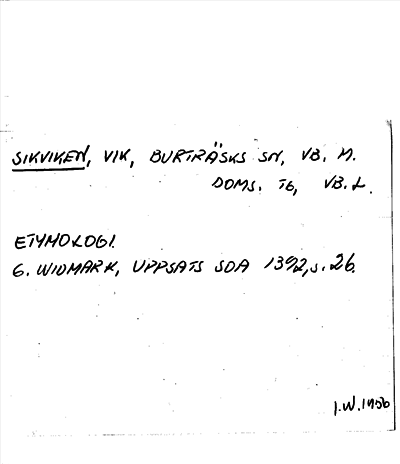 SIKVIKEN, VIK, BURTRÄSKS SN, VB. M.
DOMS. TG, VB. L.
ETYMOLOGI.
G. WIDMARK, UPPSATS SOA 1392, s. 26.
I.W. 1956